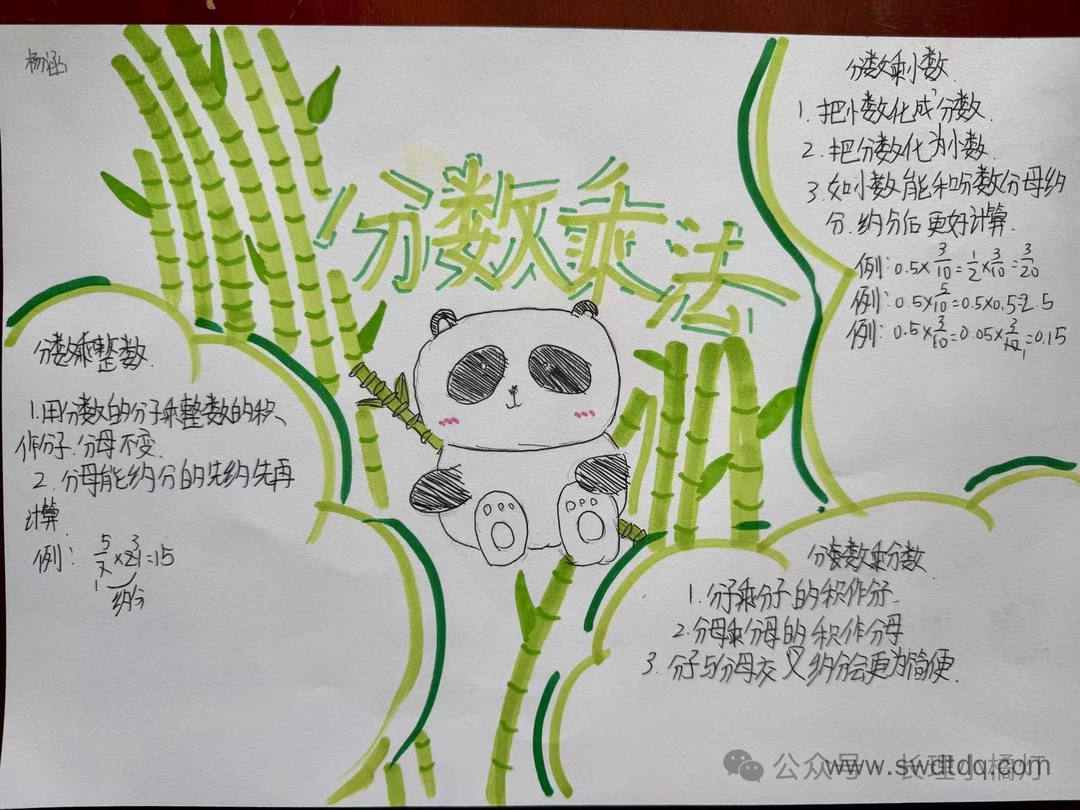 杨涵
分数乘法
分数乘整数
1.用分数的分子乘整数的积、
作分子.分母不变.
2.分母能约分的先约先再
计算
例: 5/7×21=15
1 3
约分
分数乘小数
1.把小数化成分数.
2.把分数化为小数.
3.如小数能和分数分母约
分.约分后更好计算.
例:0.5×3/10=1/2×3/10=3/20
例:0.5×5/10=0.5×0.5=2.5
例:0.5×3/10=0.05×3/10=0.15
1
分数乘分数
1.分子乘分子的积作分子
2.分母乘分母的积作分母
3.分子与分母交叉约分会更为简便.
公众号
www.swdtdq.com